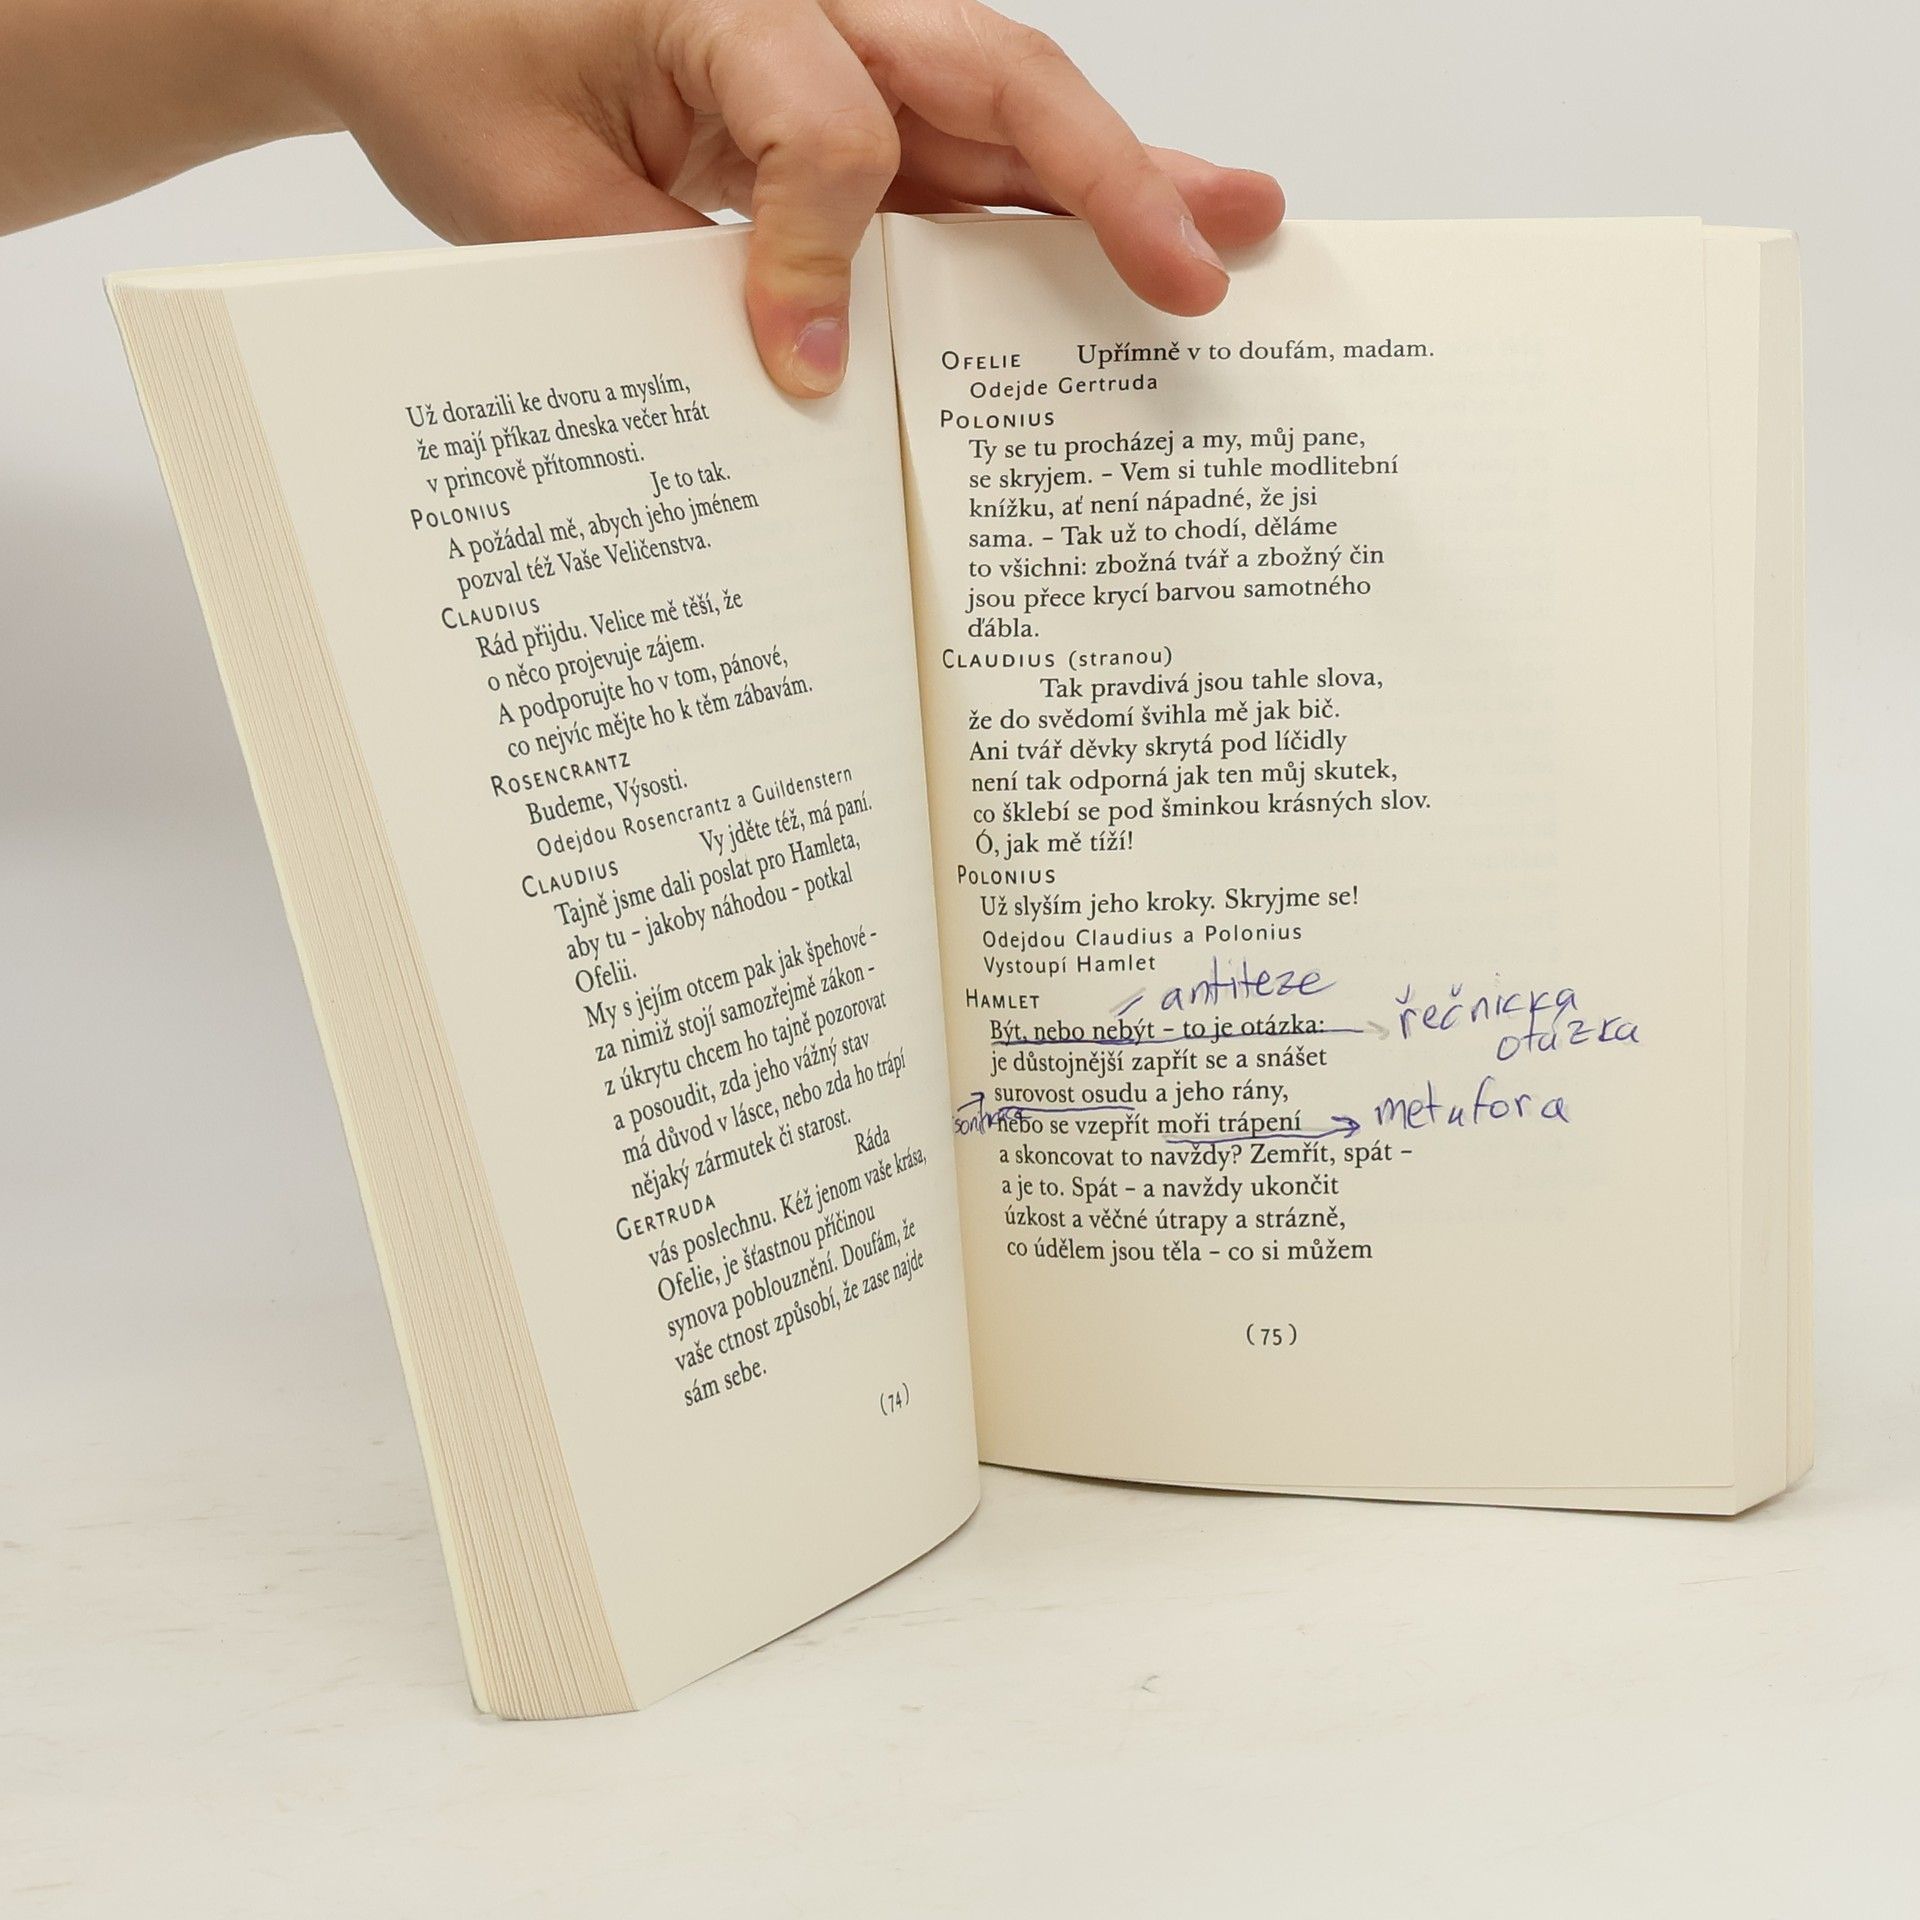 Už dorazili ke dvoru a myslím,
že mají příkaz dneska večer hrát
v princově přítomnosti.
POLONIUS Je to tak.
A požádal mě, abych jeho jménem
pozval též Vaše Veličenstva.
CLAUDIUS
Rád přijdu. Velice mě těší, že
o něco projevuje zájem.
A podporujte ho v tom, pánové,
co nejvíc mějte ho k těm zábavám.
ROSENCRANTZ
Budeme, Výsosti.
Odejdou Rosencrantz a Guildenstern
CLAUDIUS Vy jděte též, má paní.
Tajně jsme dali poslat pro Hamleta,
aby tu – jakoby náhodou – potkal
Ofelii.
My s jejím otcem pak jak špehové –
za nimiž stojí samozřejmě zákon –
z úkrytu chcem ho tajně pozorovat
a posoudit, zda jeho vážný stav
má důvod v lásce, nebo zda ho trápí
nějaký zármutek či starost.
GERTRUDA Ráda
vás poslechnu. Kéž jenom vaše krása,
Ofelie, je šťastnou příčinou
synova poblouznění. Doufám, že
vaše ctnost způsobí, že zase najde
sám sebe.
(74)
OFELIE Upřímně v to doufám, madam.
Odejde Gertruda
POLONIUS
Ty se tu procházej a my, můj pane,
se skryjem. – Vem si tuhle modlitební
knížku, ať není nápadné, že jsi
sama. – Tak už to chodí, děláme
to všichni: zbožná tvář a zbožný čin
jsou přece krycí barvou samotného
ďábla.
CLAUDIUS (stranou)
Tak pravdivá jsou tahle slova,
že do svědomí švihla mě jak bič.
Ani tvář děvky skrytá pod líčidly
není tak odporná jak ten můj skutek,
co šklebí se pod šminkou krásných slov.
Ó, jak mě tíží!
POLONIUS
Už slyším jeho kroky. Skryjme se!
Odejdou Claudius a Polonius
Vystoupí Hamlet
HAMLET antiteze
Být, nebo nebýt – to je otázka: řečnicka
otázka
je důstojnější zapřít se a snášet
surovost osudu a jeho rány,
nebo se vzepřít moři trápení metafora
a skoncovat to navždy? Zemřít, spát –
a je to. Spát – a navždy ukončit
úzkost a věčné útrapy a strázně,
co údělem jsou těla – co si můžem
(75)